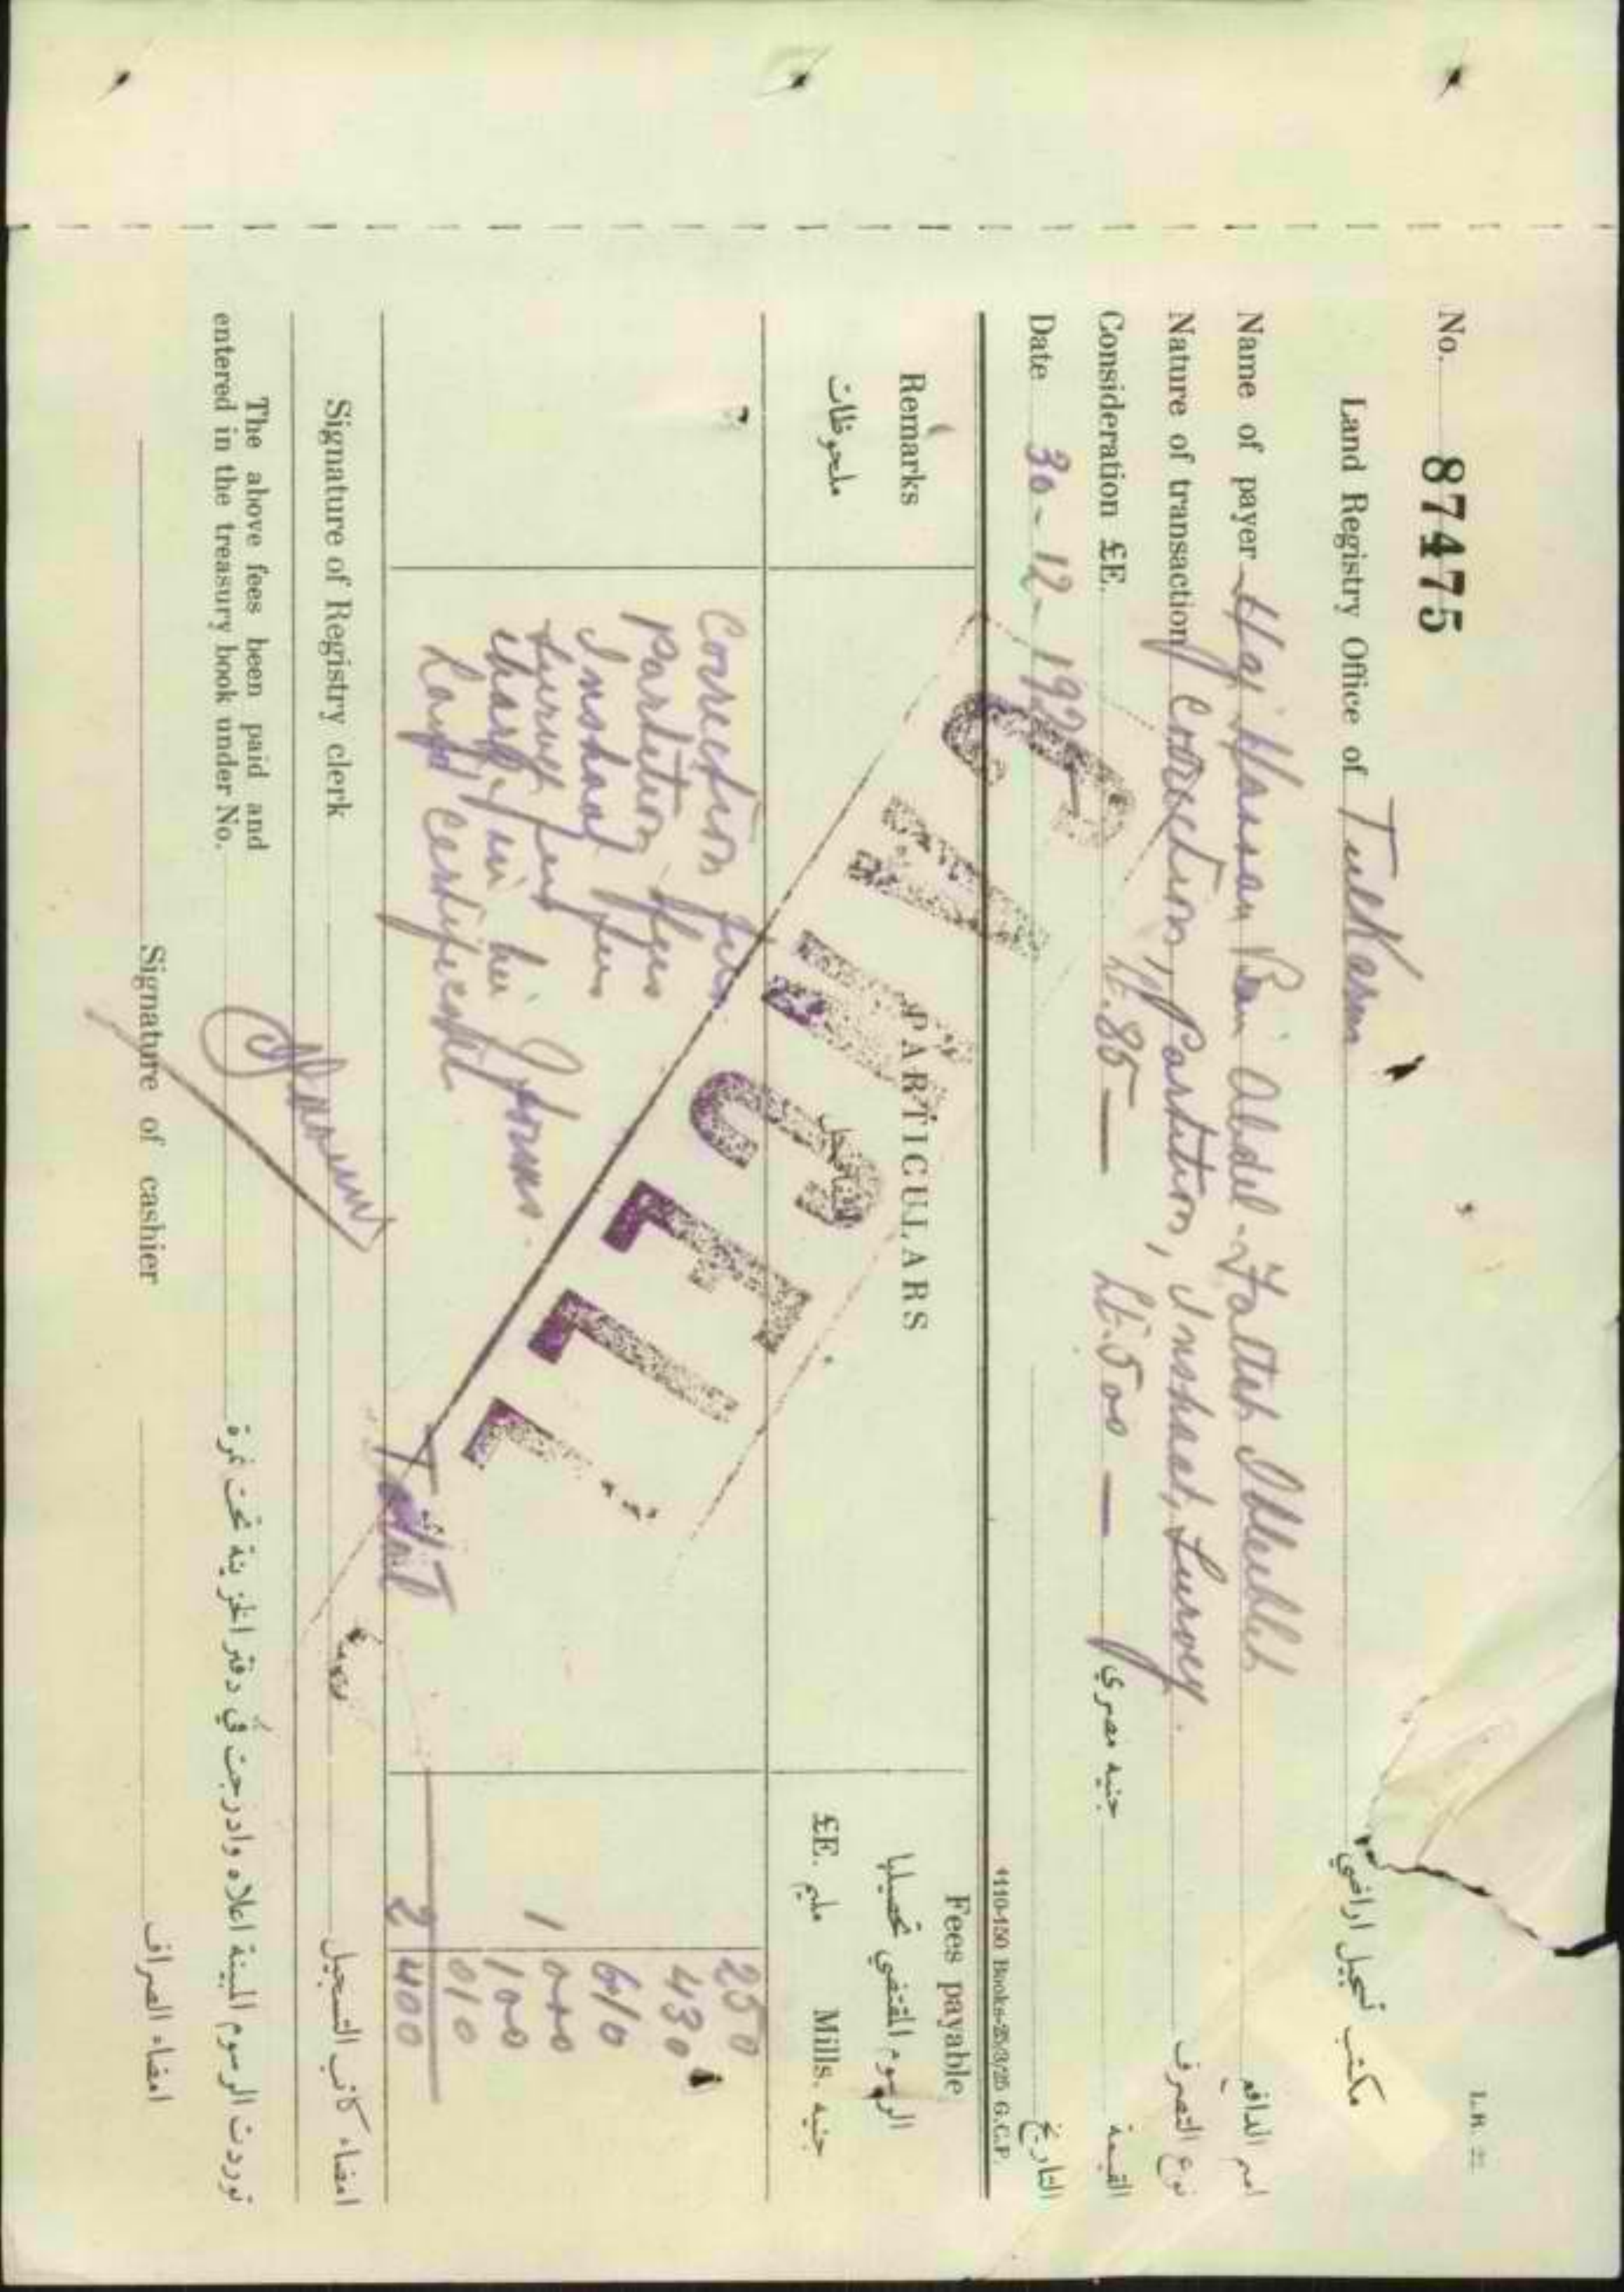 L.R. 22
No. 87475
Land Registry Office of TulKarem مكتب تسجيل اراضي
Name of payer Haj Hassan Ben Abdel-Fattah اسم الدافع
Nature of transaction Correction, Partition, Inshaat, Survey. نوع التصرف
Consideration £E. LE.85— LE.500— جنيه مصري القيمة
Date 30-12-192 التاريخ
4110-150 Books-25/3/25 G.C.P.
Remarks PARTICULARS Fees payable
ملحوظات التفاصيل الرسوم المقتضي تحصيلها
£E. مليم Mills. جنيه
CANCELLED
Correction fees 250
Partition fees 430
Inshaat fees 610
Survey fees 1 000
charge for Forms. 100
Land Certificate 010
Total 2 400
Signature of Registry clerk امضاء كاتب التسجيل
The above fees been paid and
entered in the treasury book under No. توردت الرسوم المبينة اعلاه وادرجت في دفتر الخزينة تحت نمرة
Signature of cashier امضاء الصراف